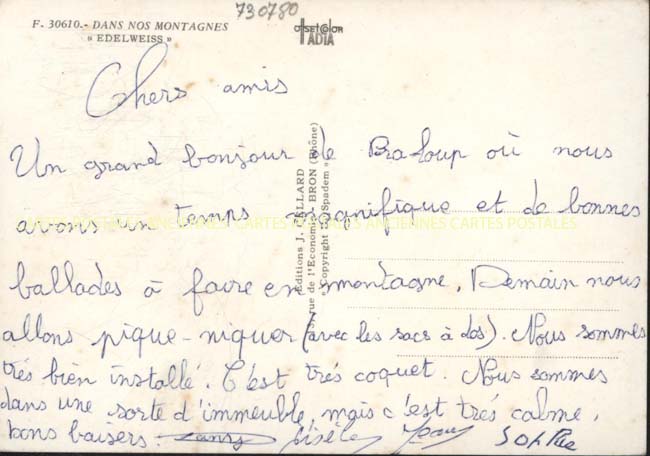 730780
F. 30610.- DANS NOS MONTAGNES
« EDELWEISS »
OFFSETCOLOR
IADIA
Chers amis
Un grand bonjour de Pra-Loup où nous
avons un temps magnifique et de bonnes
ballades à faire en montagne. Demain nous
allons pique-niquer (avec les sacs à dos). Nous sommes
très bien installé. C'est très coquet. Nous sommes
dans une sorte d'immeuble, mais c'est très calme.
bons baisers. Gisèle
Editions J. CELLARD
rue de l'Economie - BRON (Rhône)
Copyright by « Spadem »
CARTES POSTALES ANCIENNES CARTES POSTALES